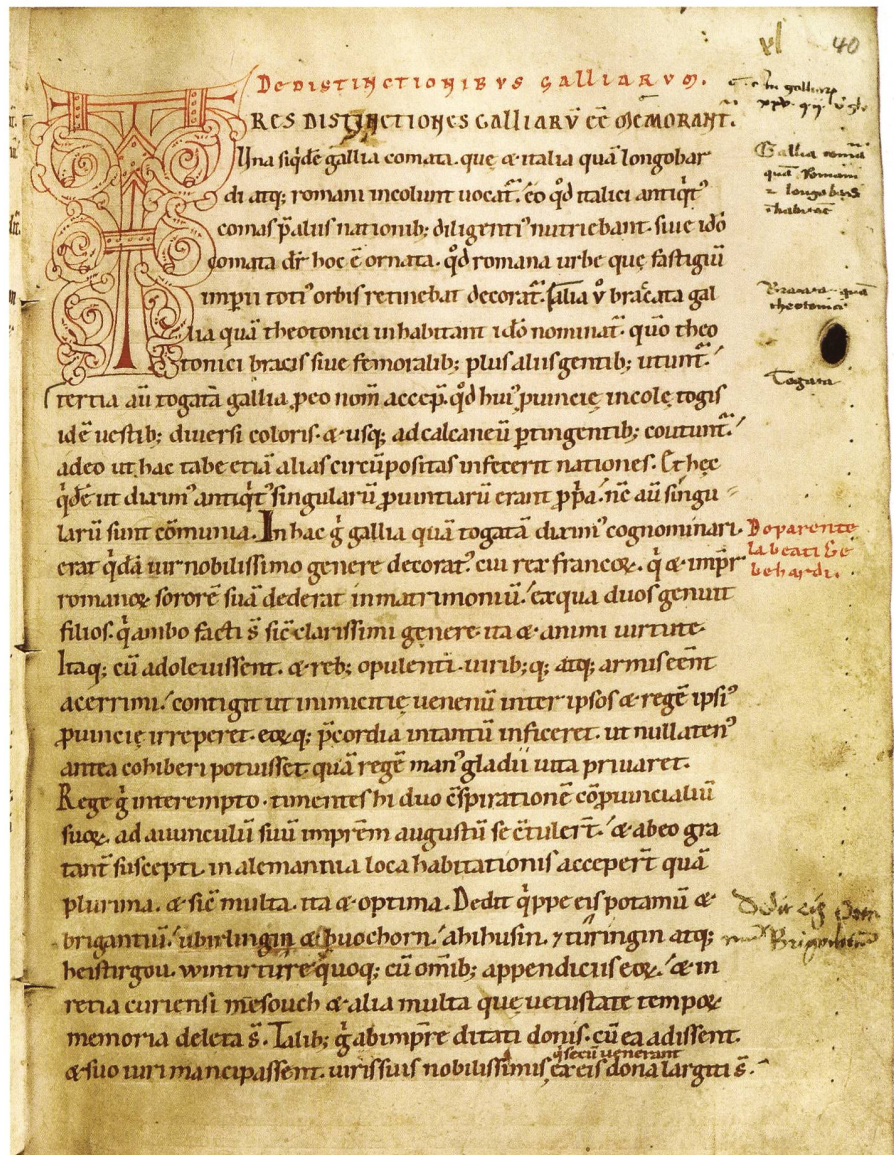 vl 40
DE DISTINCTIONIBVS GALLIARVM.
TRES DISTINCTIONES GALLIARV̄ EĒ MEMORANT̃.
Una siq̇dē gallia comata. quę & italia quā longobar
di atq; romani incolunt uocat̃. eo qd̓ italici antiq̇t᷒
comas p̄ aliis nationib; diligenti᷒ nutriebant. siue idō
comata dr̄ hoc ē ornata. qd̓ romana urbe que fastigiū
imperii toti᷒ orbis retinebat decorat̃. Alia v̊ bracata gal
lia quā theotonici inhabitant idō nominat̃. quo theo
tonici bracis siue femoralib; plus aliis gentib; utunt̃.
tertia aū togata gallia ꝓ eo nom̄ accep̄. qd̓ hui᷒ ꝓuincię incolę togis
idē uestib; diuersi coloris. & usq; ad calcaneū ꝑtingentib; coutunt̃.
adeo ut hac tabe etiā alias circūpositas infecerit nationes. Et hęc
q̇dē ut dixim᷒ antiq̇t᷒ singularū ꝓuintiarū erant ꝓp̃a. nc̄ aū singu
larū sunt cōmunia. In hac g̊ gallia quā togatā dixim᷒ cognominari. De parente
erat q̇dā uir nobilissimo genere decorat᷒. cui rex francoꝝ. q̇ & imp̄r la beati Ge
romanoꝝ sororē suā dederat in matrimoniū. ex qua duos genuit behardi.
filios. q̇ ambo facti s̄ sic̄ clarissimi genere. ita & animi uirtute.
Itaq; cū adoleuissent. & reb; opulenti. uirib;q; atq; armis eēnt
acerrimi. contigit ut inimicitię uenenū inter ipsos & regē ipsi᷒
ꝓuincię irreperet. eoꝝq; p̄cordia intantū inficeret. ut nullaten᷒
antea cohiberi potuisset. quā regē man᷒ gladii uita priuaret.
Rege g̊ interempto. timentes hi duo c̄spirationē cōꝓuincialiū
suoꝝ. ad auunculū suū imprēm augustū se c̄tulert̄. & ab eo gra
tant̃ suscepti. in alemannia loca habitationis accepert̄ quā
plurima. & sic̄ multa. ita & optima. Dedit q̇ppe eis potamū &
brigantiū. ubirlingin & buochorn. ahihusin. ⁊ türingin atq;
heistirgou. wintirture quoq; cū om̄ib; appendiciis eoꝝ. & in
retia curiensi mesouch & alia multa quę uetustate tempoꝝ
memoria deleta s̄. Talib; g̊ ab impr̄e ditati donis. cū ea adissent.
q̇ secū uenerant
& suo iuri mancipassent. uiris suis nobilissimis ex eis dona largiti s̄.
Gallia comā
quā Romani
⁊ longobardi
habitāt
Bracata quā
theotonici
Togata